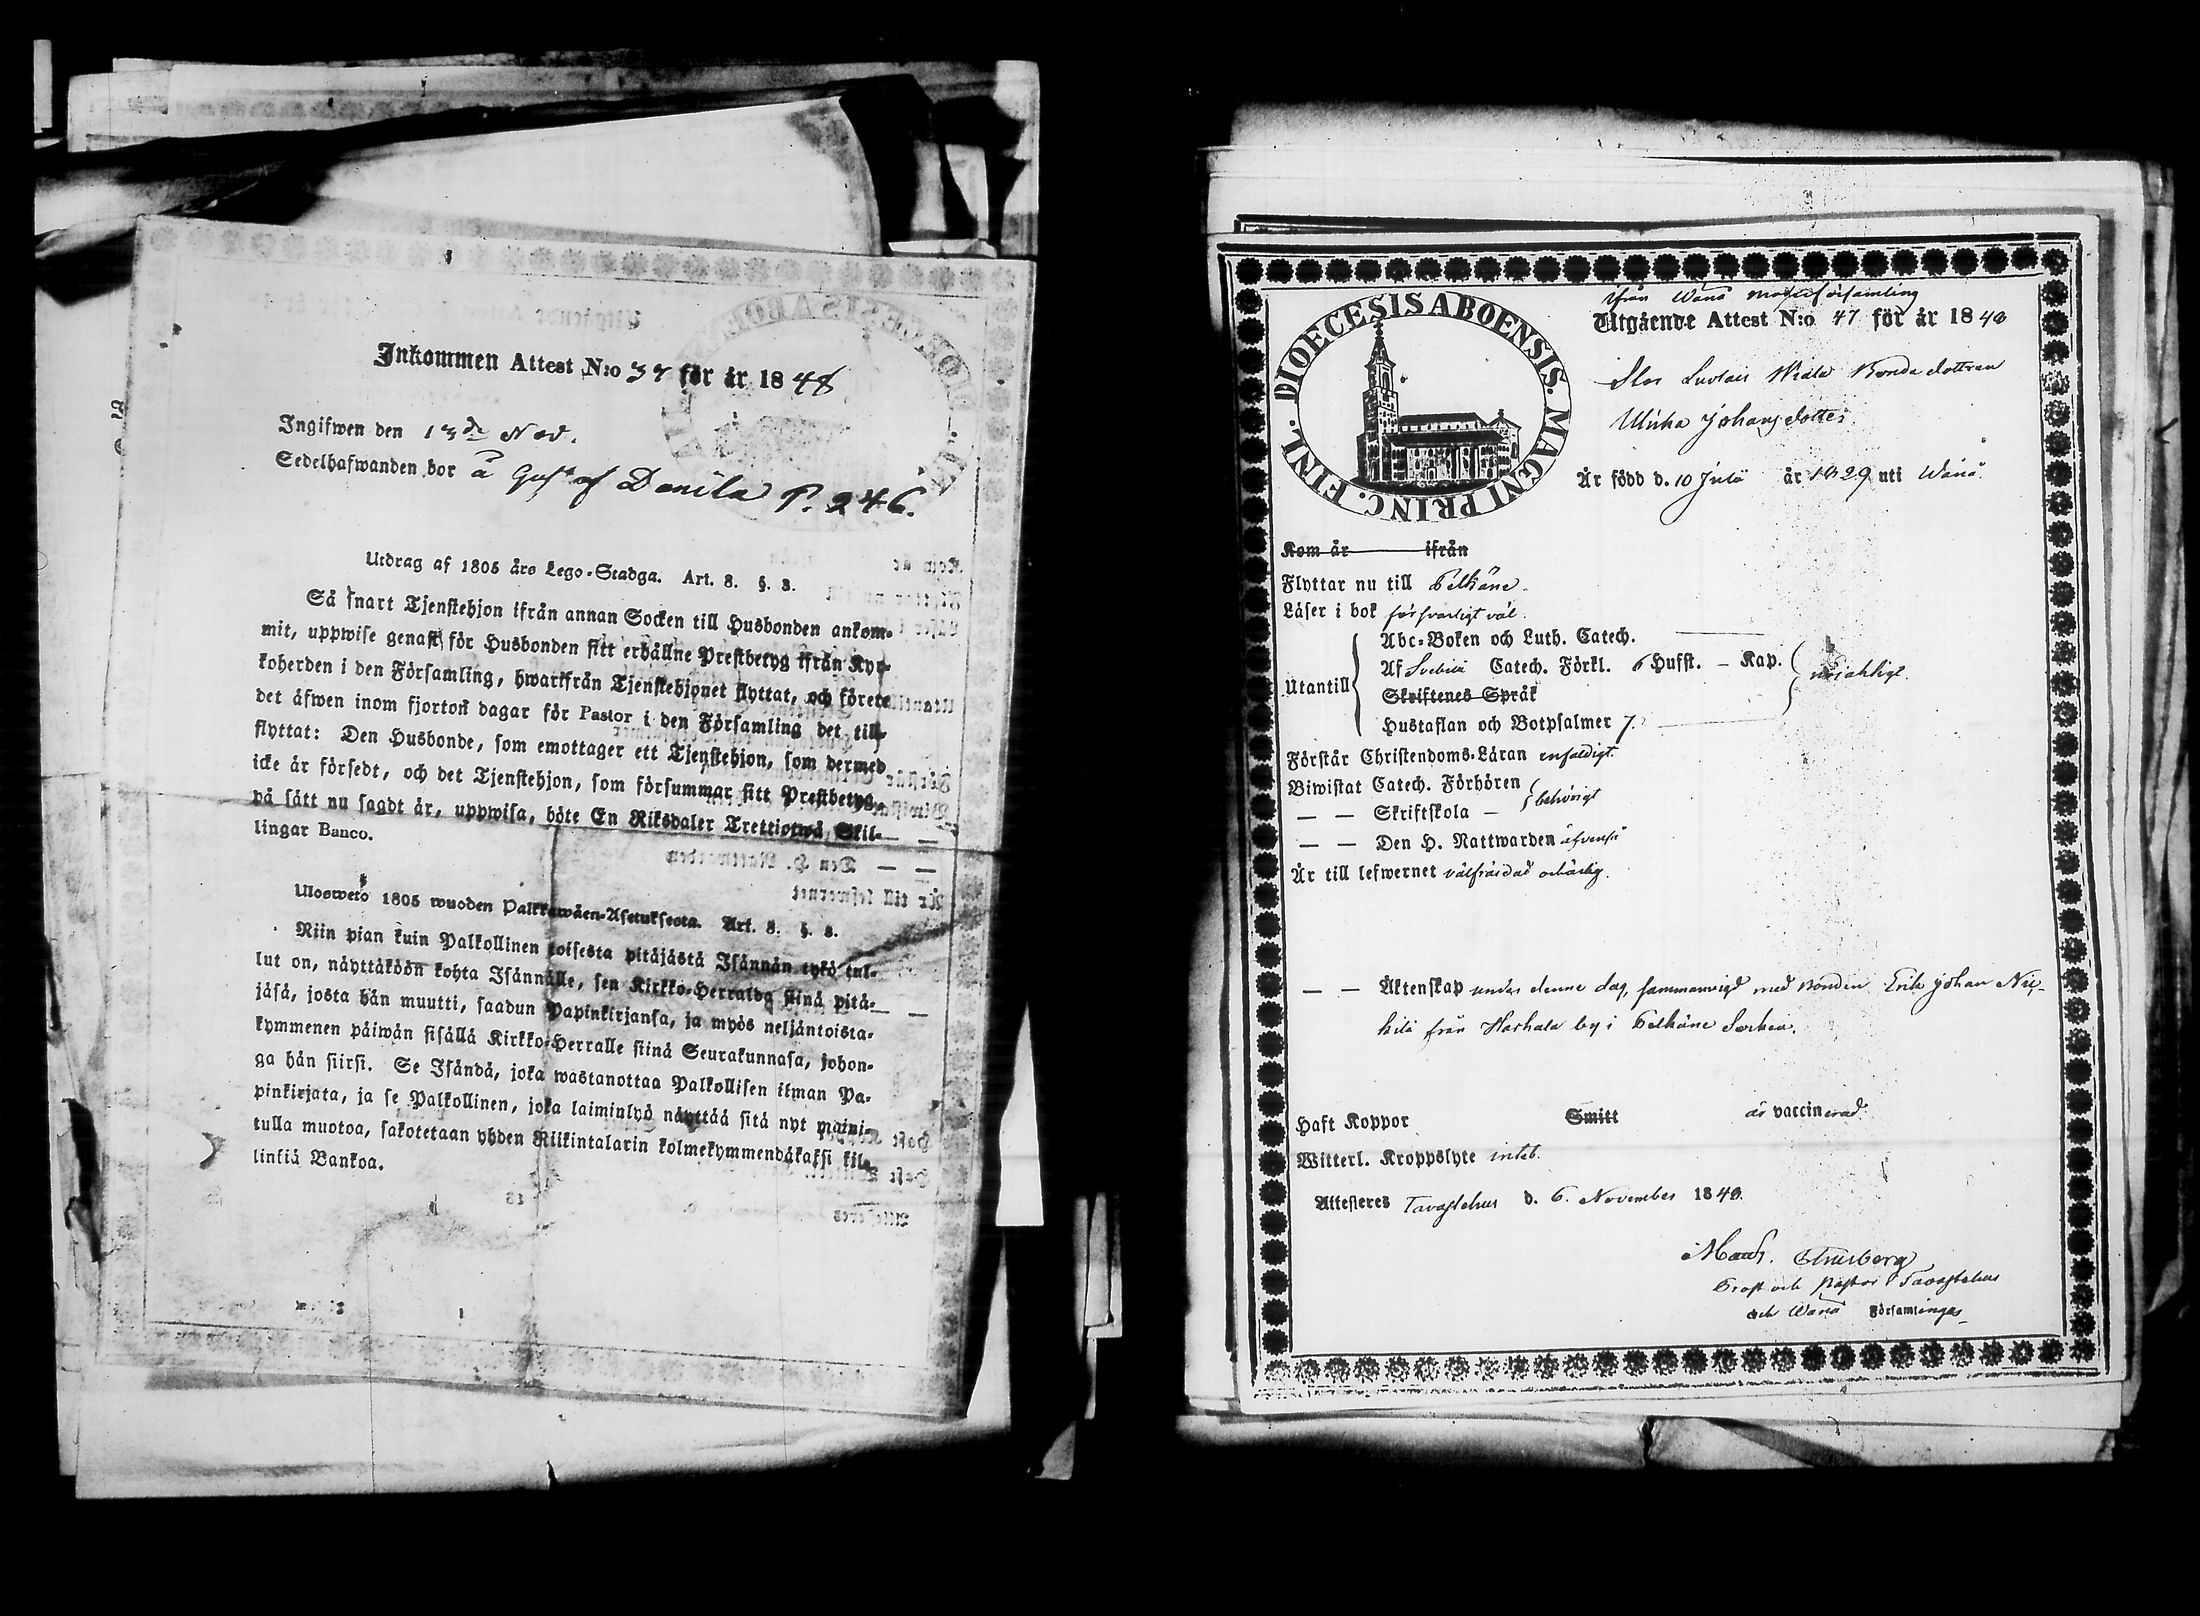 Inkommen Attest N:o 37 för år 1848
Ingifwen den 13de Nov.
Sedelhafwanden bor å Gust. af Danila P. 246.
Utdrag af 1805 års Lego-Stadga. Art. 8. §. 8.
Så snart Tjenstehjon ifrån annan Socken till Husbonden ankom-
mit, uppwise genast för Husbonden sitt erhållne Prestbetyg ifrån Kyr-
koherden i den Församling, hwarifrån Tjenstehjonet flyttat, och förete
det äfwen inom fjorton dagar för Pastor i den Församling det till-
flyttat: Den Husbonde, som emottager ett Tjenstehjon, som dermed
icke är försedt, och det Tjenstehjon, som försummar sitt Prestbetyg,
på sätt nu sagdt är, uppwisa, böte En Riksdaler Trettiotwå Skil-
lingar Banco.
Ulosweto 1805 wuoden Palkkawäen-Asetuksesta. Art. 8. §. 8.
Niin pian kuin Palkollinen toisesta pitäjästä Isännän tykö tul-
lut on, näyttäköön kohta Isännälle, sen Kirkko-Herralda siinä pitä-
jäsä, josta hän muutti, saadun Papinkirjansa, ja myös neljäntoista-
kymmenen päiwän sisällä Kirkko-Herralle siinä Seurakunnasa, johon-
ga hän siirsi. Se Isändä, joka wastanottaa Palkollisen ilman Pa-
pinkirjata, ja se Palkollinen, joka laiminlyö näyttää sitä nyt maini-
tulla muotoa, sakotetaan yhden Riikintalarin kolmekymmendäkaksi kil-
linkiä Bankoa.
DIOECESIS ABOENSIS. MAGNI PRINC. FINL.
ifrån Wånå moderförsamling
Utgående Attest N:o 47 för år 1848
Bonde dottren
Ulrika Johansdotter
Är född d. 10 Julii år 1829 uti Wånå
Kom år ifrån
Flyttar nu till Pelkäne.
Läser i bok försvarligt väl.
Abc-Boken och Luth. Catech.
Utantill Af Svebilii Catech. Förkl. 6 Hufst. – Kap.
Skriftenes Språk
Hustaflan och Botpsalmer 7.
Förstår Christendoms-Läran enfaldigt.
Biwistat Catech. Förhören
— — Skriftskola — behörigt
— — Den H. Nattwarden äfvenså
Är till lefwernet välfräjdad och ärlig.
— — Äktenskap under denne dag, sammanvigd med Bonden Erik Johan Nie-
kilä från Harhala by i Pelkäne Socken.
Haft Koppor Smitt är vaccinerad.
Witterl. Kroppslyte intet.
Attesteres Tavastehus d. 6. November 1848.
Prost och Pastor i Tavastehus
och Wånå Församlingar